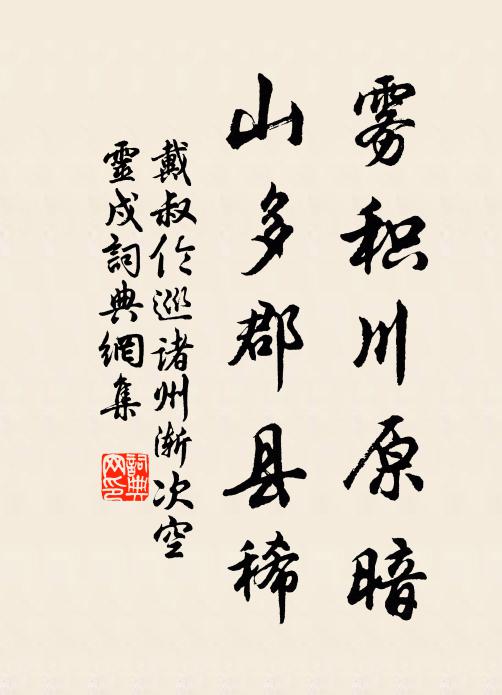 雾积川原暗
山多郡县稀
戴叔伦巡诸州渐次空
靈戍詞典網集
詞典
网印